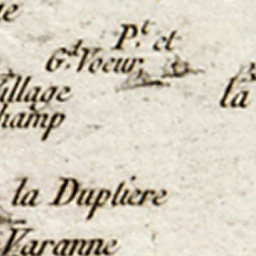 P.t et
G.d Voeur,
illage
la
hamp
la Dupliere
Varanne